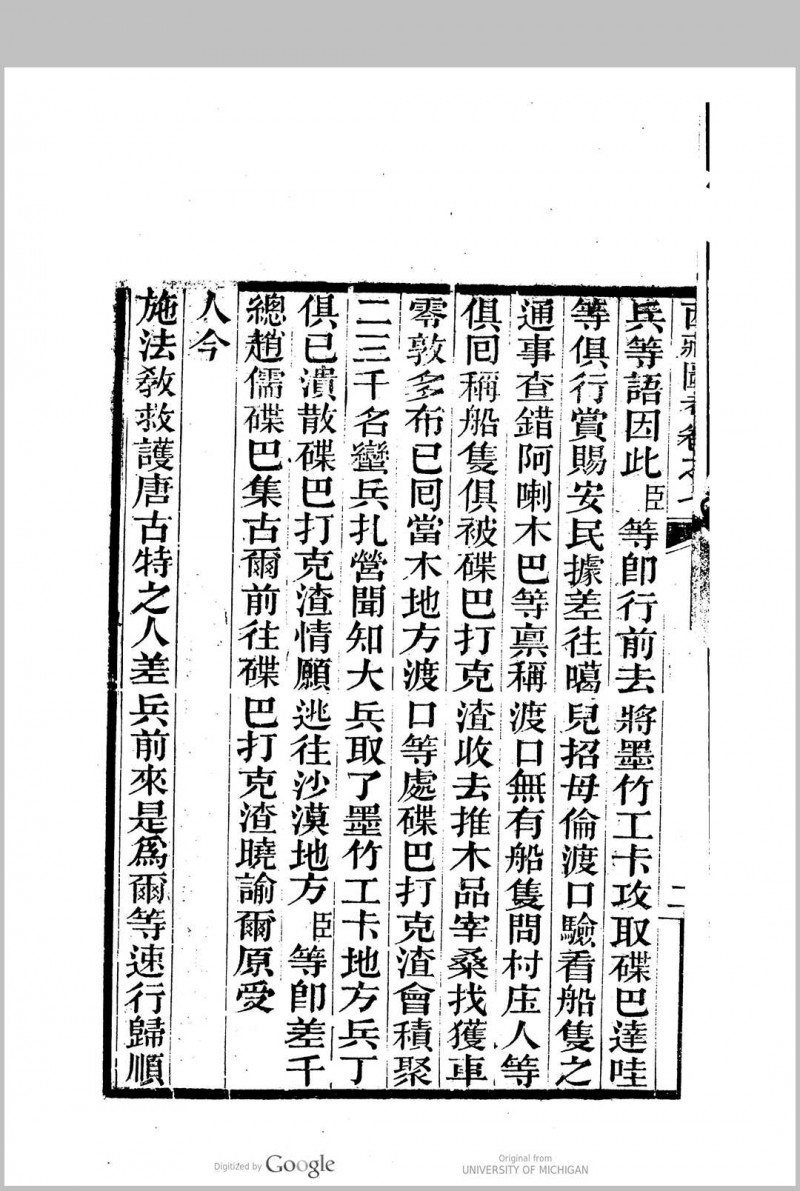 西藏圖考卷之
二
兵等語因此臣等卽行前去將墨竹工卡攻取碟巴達哇
等俱行賞賜安民據差往噶兒招母倫渡口驗看船隻之
通事查錯阿喇木巴等稟稱渡口無有船隻問村庄人等
俱囘稱船隻俱被碟巴打克渣收去推木品宰桑找獲車
零敦多布已囘當木地方渡口等處碟巴打克渣會積聚
二三千名蠻兵扎營聞知大兵取了墨竹工卡地方兵丁
俱已潰散碟巴打克渣情願逃往沙漠地方臣等卽差千
總趙儒碟巴集古爾前往碟巴打克渣曉諭爾原受
人今
施法敎救護唐古特之人差兵前來是爲爾等速行歸順
Digitized by Google
Original from
UNIVERSITY OF MICHIGAN